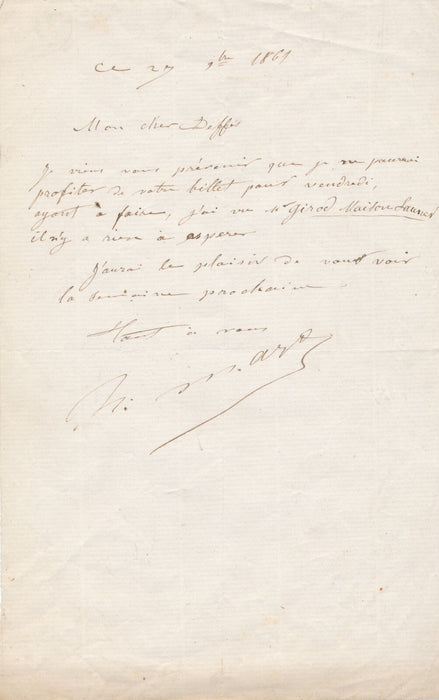 ce 27 9bre 1861
Mon cher Deffès
Je viens vous prévenir que je ne pourrai
profiter de votre billet pour vendredi,
ayant à faire, j'ai vu Mr Girod
il n'y a rien à esperer
J'aurai le plaisir de vous voir
la semaine prochaine
Tout à vous